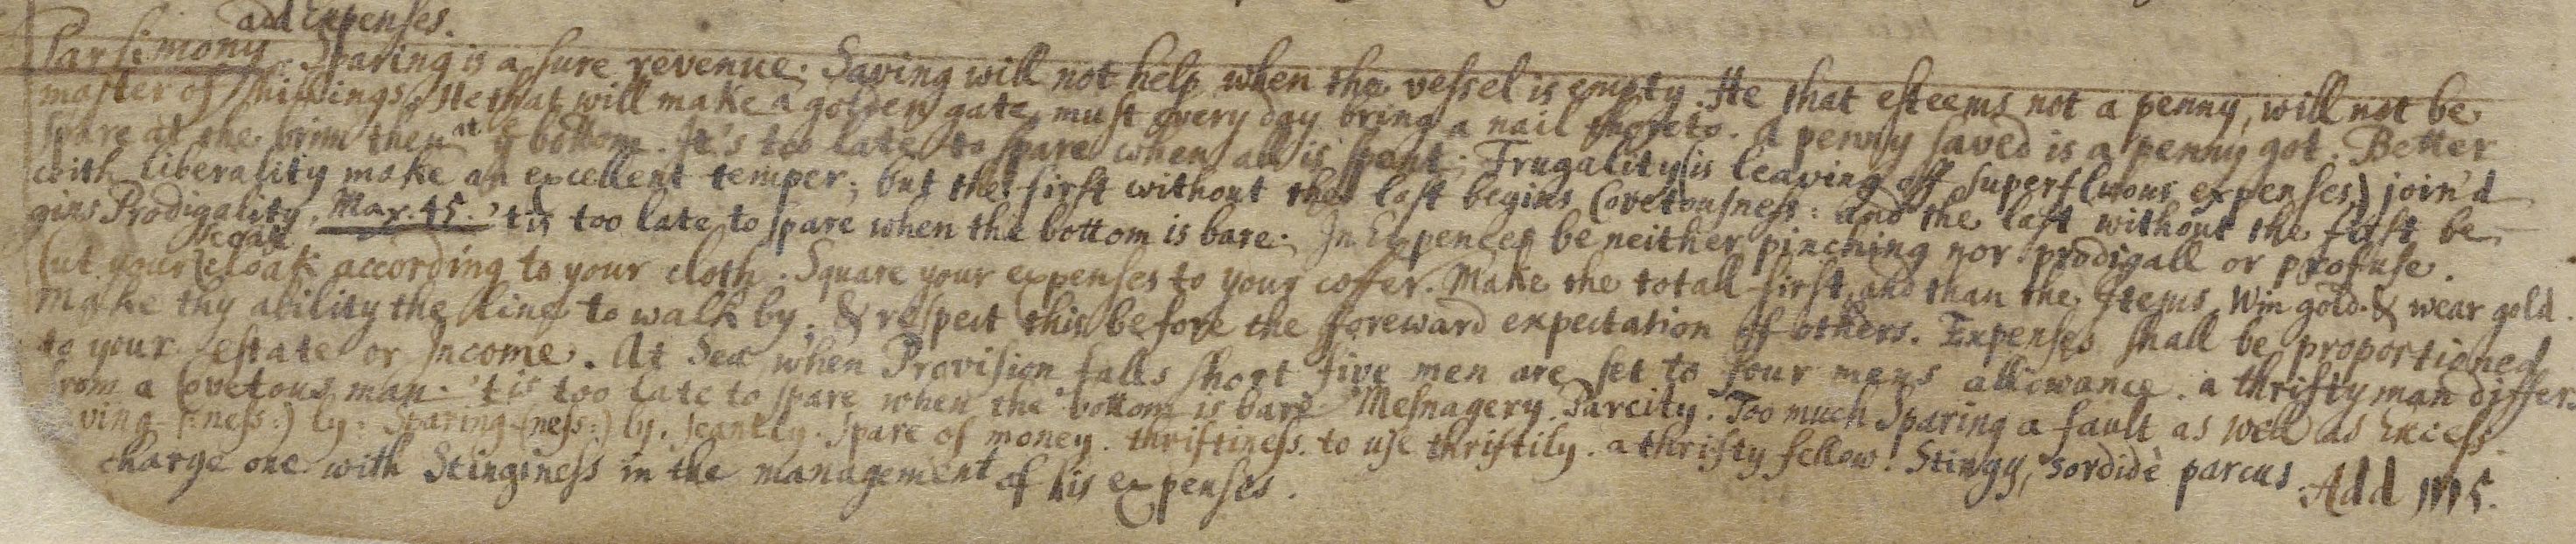 add Expenses.
Parsimony. Sparing is a sure revenue. Saving will not help when the vessel is empty. He that esteems not a penny, will not be
master of shillings. He that will make a golden gate, must every day bring a nail thereto. A penny saved is a penny got. Better
spare at the brim then at ye bottom. It's too late to spare when all is spent. Frugality (is leaving off superfluous expenses) join'd
with liberality make an excellent temper; but the first without the last begins Covetousness: and the last without the first be-
gins Prodigality. Max. 45. 'tis too late to spare when the bottom is bare. In Expences be neither pinching nor prodigall or profuse.
Cut your cloak according to your cloth. Square your expenses to your coffer. Make the totall first, and than the Items. Win gold & wear gold.
Make thy ability the line to walk by, & respect this before the foreward expectation of others. Expenses shall be proportioned
to your estate or Income. At Sea when Provision falls short five men are set to four mens allowance. a thrifty man differs
from a Covetous man. 'tis too late to spare when the bottom is bare Mesnagery. Parcity. Too much Sparing a fault as well as Excess.
ving-(ness:) ly: Sparing-(ness:) ly. scantly. Spare of money. thriftiness. to use thriftily. a thrifty fellow. Stingy, sordidè parcus. Add
charge one with Stinginess in the management of his expenses.